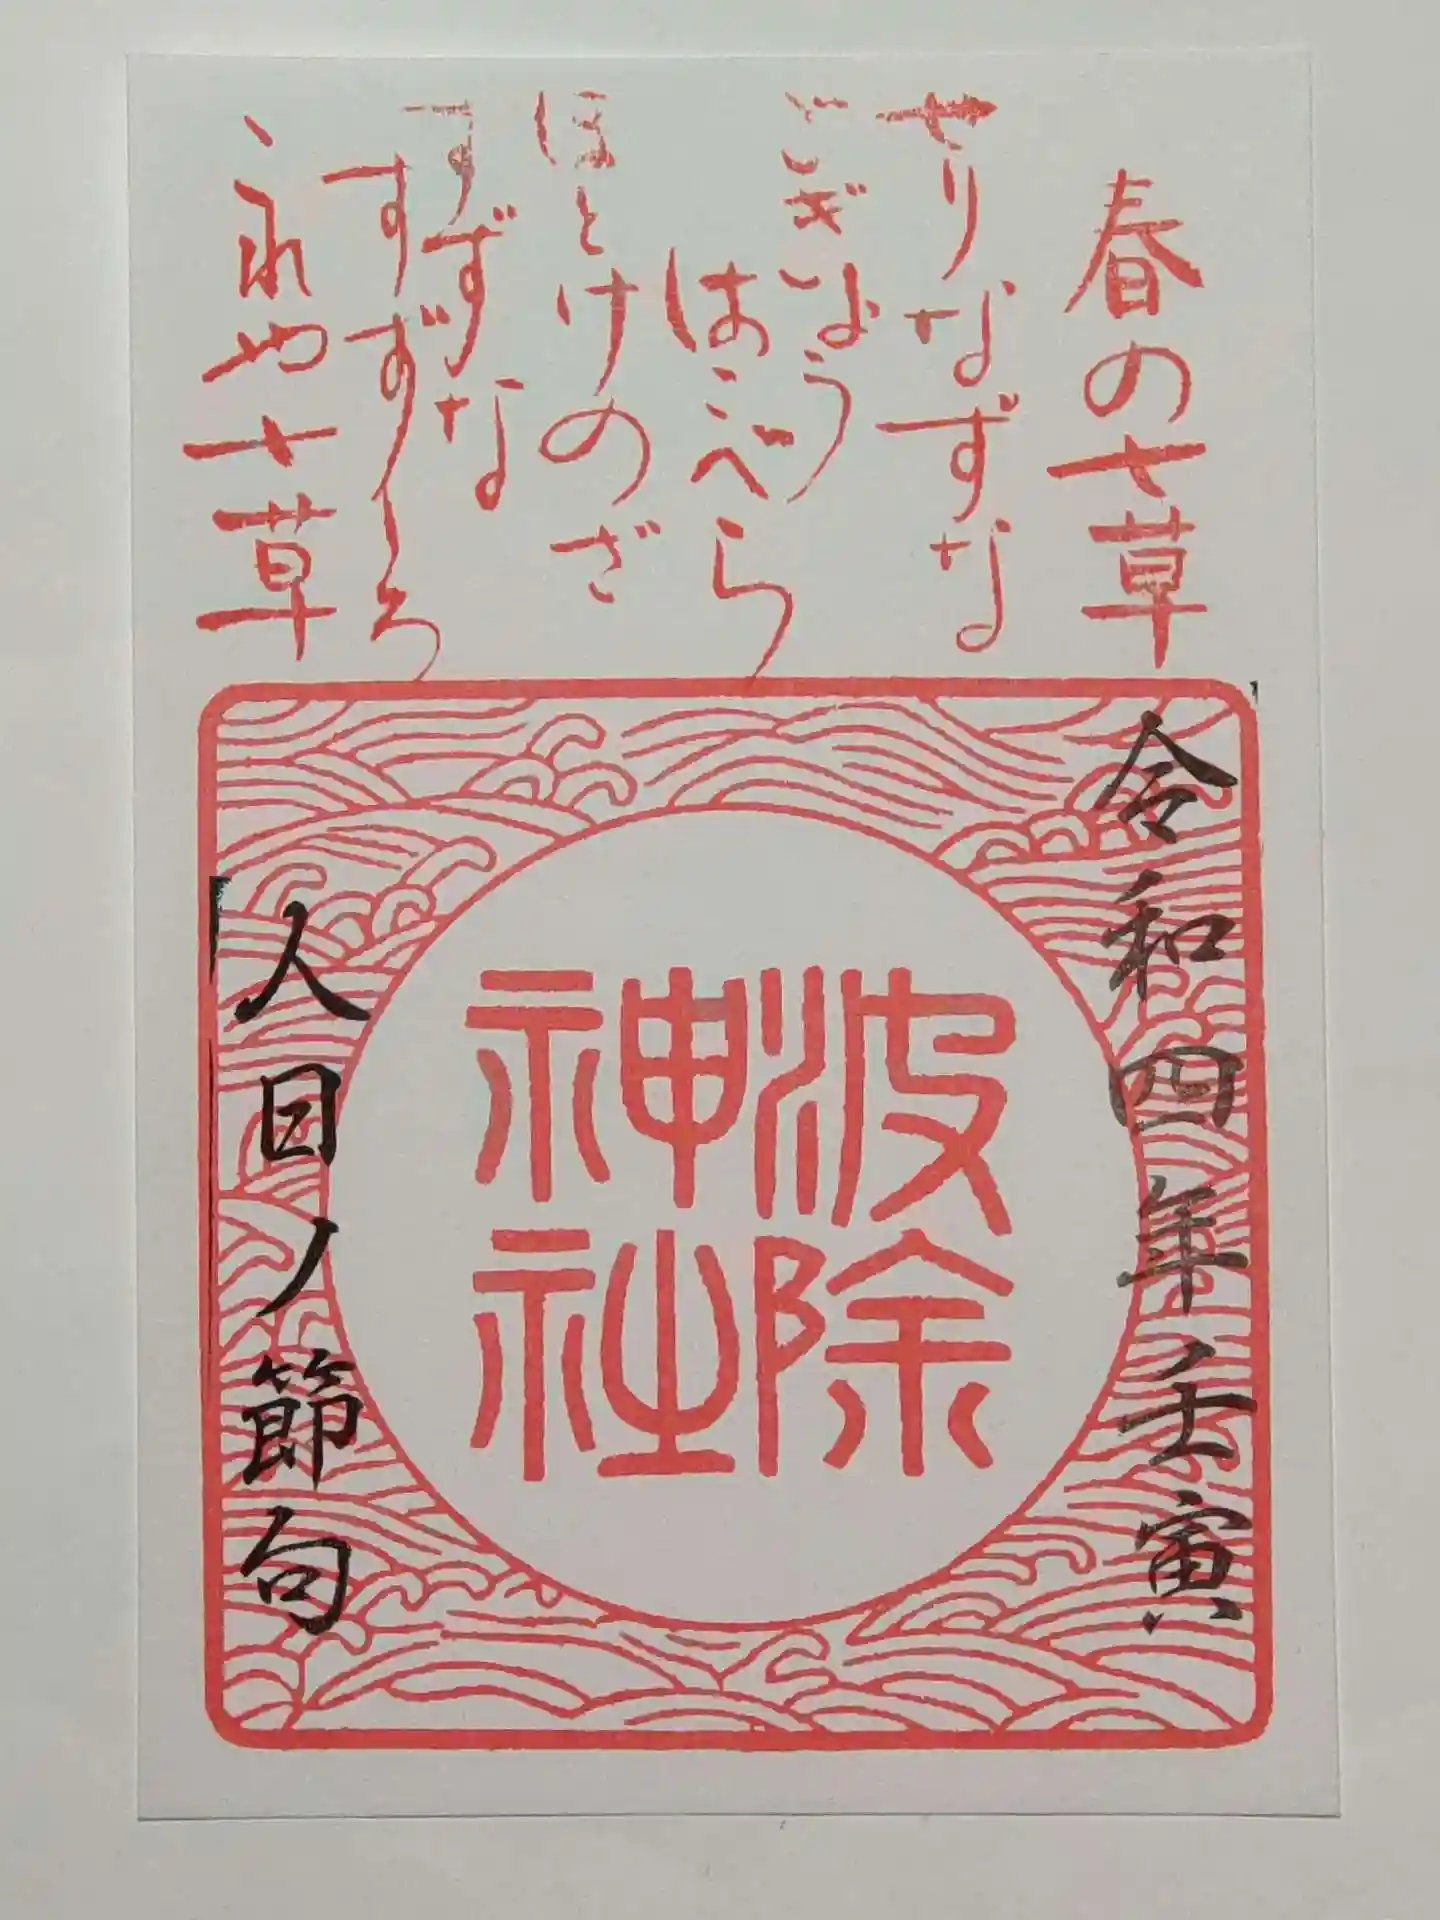 春の七草
せりなずな
ごぎょう
はこべら
ほとけのざ
すずな
すずしろ
これや七草
令和四年壬寅
波除
神社
人日ノ節句